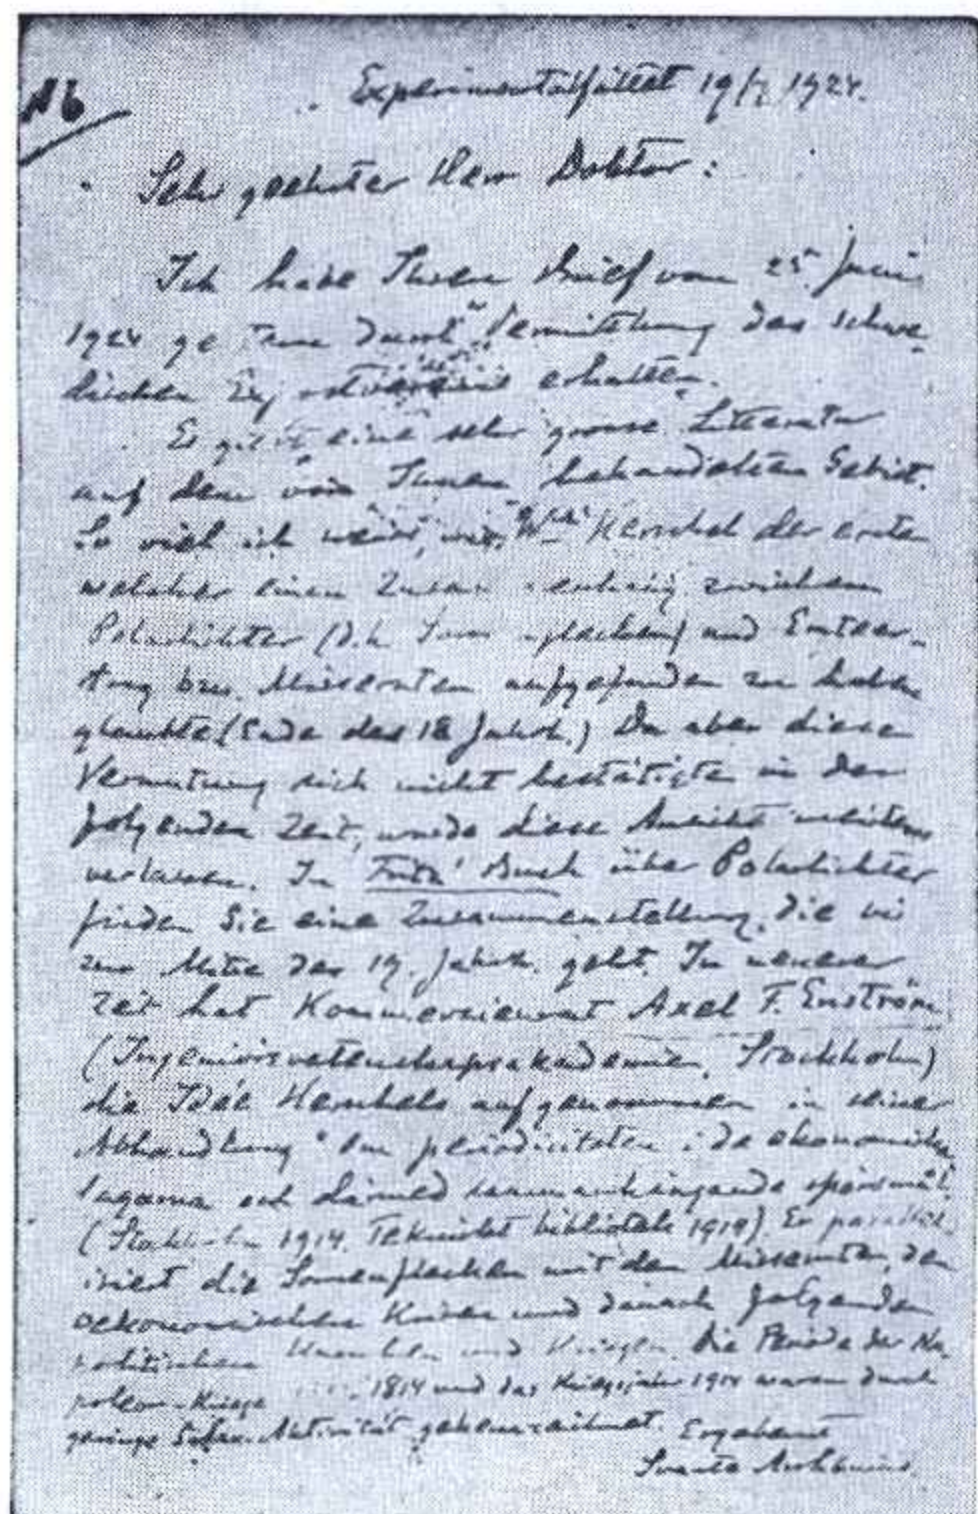 Experimentalfältet 19/7 1924.
Sehr geehrter Herr Doktor:
Ich habe Ihren Brief vom 25 Juni
1924 durch Vermittelung des schwe-
dischen erhalten.
Es giebt eine sehr grosse Literatur
auf dem von Ihnen behandelten Gebiet.
So viel ich weiss, war Wm Herschel der erste
welcher einen zwischen
Polarlichter (d.h. Sonnenflecken) und Ernteer-
trag bzw. Missernten aufgefunden zu haben
glaubte (Ende des 18 Jahrh.) Da aber diese
Vermutung sich nicht bestätigte in der
folgenden Zeit, wurde diese Ansicht meistens
verlassen. In Fritz' Buch über Polarlichter
finden Sie eine Zusammenstellung, die
zur Mitte des 19. Jahrh. geht. In neuerer
Zeit hat Kommersienrat Axel F. Enström
(Ingeniörsvetenskapsakademien, Stockholm)
die Idée Herschels aufgenommen in seiner
Abhandlung "Om periodiciteten i de ekonomiska
lagarna och därmed sammanhängande spörsmål
(Stockholm 1914. Tekniskt bibliotek 1914). Er parallel-
isiert die Sonnenflecken mit den Missernten, den
oekonomischen Krisen und danach folgenden
politischen und Kriegen. Die Periode der Na-
poleon-Kriege 1814 und das Kriegsjahr 1914 waren durch
geringe Aktivität gekennzeichnet. Ergebenst
Svante Arrhenius.